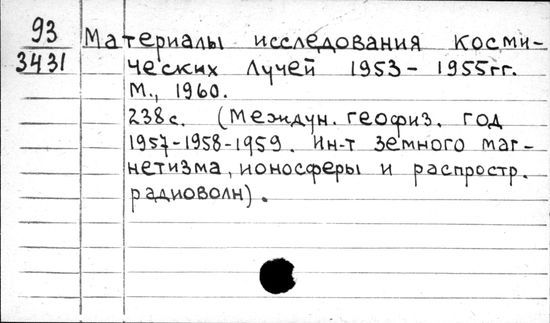 93
3431
Материалы исследования косми-
ческих лучей 1953-1955гг.
М., 1960.
238с. (Междун. геофиз. год
1957-1958-1959. Ин-т земного маг-
нетизма, ионосферы и распростр.
радиоволн).